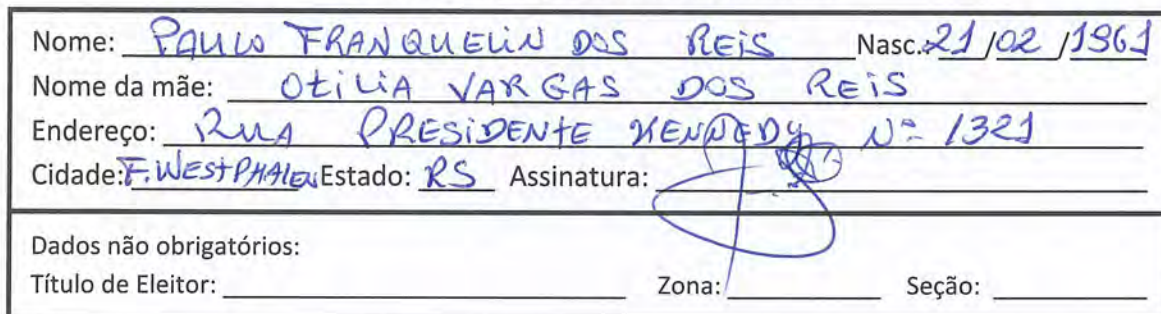 Nome: PAULO FRANQUELIN DOS REIS Nasc.: 21/02/1961
Nome da mãe: OtiLiA VARGAS DOS REiS
Endereço: RUA PRESiDENtE KENNEDY Nº 1321
Cidade: F. WEStPHALEN Estado: RS Assinatura:
Dados não obrigatórios:
Título de Eleitor: Zona: Seção: